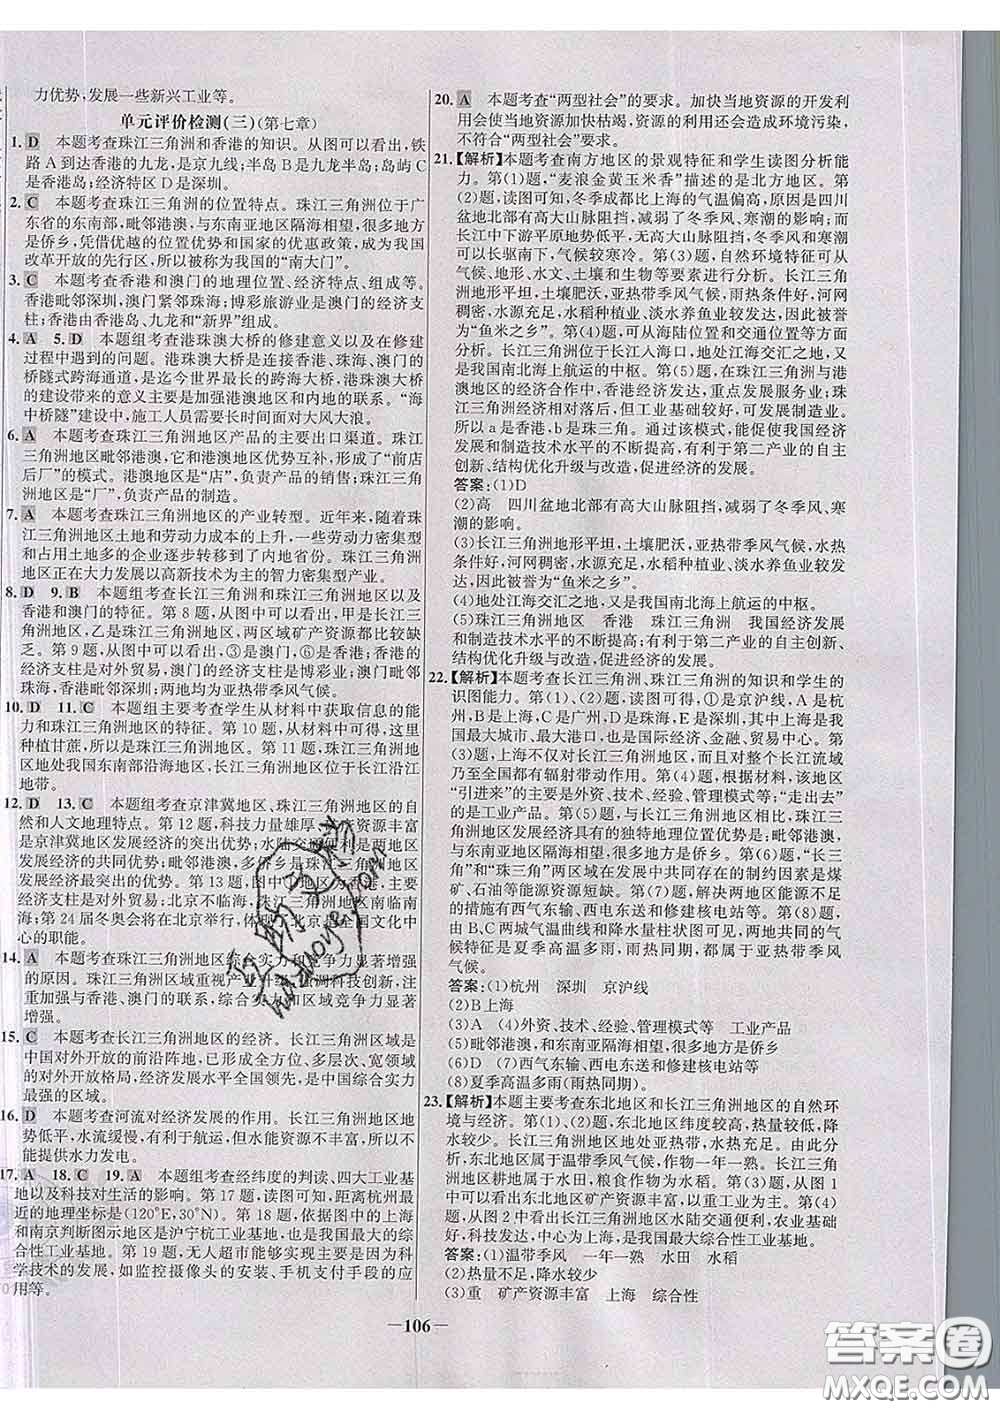 力优势,发展一些新兴工业等。
单元评价检测(三)(第七章)
1. D 本题考查珠江三角洲和香港的知识。从图可以看出,铁
路A到达香港的九龙,是京九线;半岛B是九龙半岛;岛屿C
是香港岛;经济特区D是深圳。
2. C 本题考查珠江三角洲的位置特点。珠江三角洲位于广
东省的东南部,毗邻港澳,与东南亚地区隔海相望,很多地方
是侨乡,凭借优越的位置优势和国家的优惠政策,成为我国
改革开放的先行区,所以被称为我国的“南大门”。
3. C 本题考查香港和澳门的地理位置、经济特点、组成等。
香港毗邻深圳,澳门紧邻珠海;博彩旅游业是澳门的经济支
柱;香港由香港岛、九龙和“新界”组成。
4. A 5. D 本题组考查港珠澳大桥的修建意义以及在修建
过程中遇到的问题。港珠澳大桥是连接香港、珠海、澳门的
桥隧式跨海通道,是迄今世界最长的跨海大桥,港珠澳大桥
的建设带来的意义主要是加强港澳地区和内地的联系。“海
中桥隧”建设中,施工人员需要长时间面对大风大浪。
6. A 本题考查珠江三角洲地区产品的主要出口渠道。珠江
三角洲地区毗邻港澳,它和港澳地区优势互补,形成了“前店
后厂”的模式。港澳地区是“店”,负责产品的销售;珠江三角
洲地区是“厂”,负责产品的制造。
7. A 本题考查珠江三角洲地区的产业转型。近年来,随着珠
江三角洲地区土地和劳动力成本的上升,一些劳动力密集型
和占用土地多的企业逐步转移到了内地省份。珠江三角洲
地区正在大力发展以高新技术为主的智力密集型产业。
8. D 9. B 本题组考查长江三角洲和珠江三角洲地区以及
香港和澳门的特征。第8题,从图中可以看出,甲是长江三
角洲地区,乙是珠江三角洲地区,两区域矿产资源都比较缺
乏。第9题,从图中可以看出,③是澳门,⑥是香港;香港的
经济支柱是对外贸易,澳门的经济支柱是博彩业;澳门毗邻
珠海,香港毗邻深圳;两地均为亚热带季风气候。
10. D 11. C 本题组主要考查学生从材料中获取信息的能
力和珠江三角洲地区的特征。第10题,从材料中可得,这里
种植甘蔗,所以是珠江三角洲地区。第11题,珠江三角洲
地区地处我国东南部沿海地区,长江三角洲地区位于长江沿江
地带。
12. D 13. C 本题组考查京津冀地区、珠江三角洲地区的自
然和人文地理特点。第12题,科技力量雄厚、矿产资源丰富
是京津冀地区发展经济的突出优势;水陆交通便利是两地区
发展经济的共同优势;毗邻港澳、多侨乡是珠江三角洲地区
发展经济最突出的优势。第13题,图中
可以看出;北京不临海,珠江三角洲地区南临南
海;第24届冬奥会将在北京举行,体现了北京是全国文化中
心的职能。
14. A 本题考查珠江三角洲地区综合实力和竞争力显著增强
的原因。珠江三角洲区域重视产业升级,强调科技创新,注
重与香港、澳门的联系,综合实力和区域竞争力显著
增强。
15. C 本题考查长江三角洲地区的经济。长江三角洲区域是
中国对外开放的前沿阵地,已形成全方位、多层次、宽领域
的对外开放格局,经济发展水平全国领先,是中国综合实力
最强的区域。
16. D 本题考查河流对经济发展的作用。长江三角洲地区地
势低平,水流缓慢,有利于航运,但水能资源不丰富,所以不
能提供水力发电。
17. A 18. C 19. A 本题组考查经纬度的判读、四大工业基
地以及科技对生活的影响。第17题,读图可知,距离杭州最
近的地理坐标是(120°E,30°N)。第18题,根据图中的上海
和南京判断图示地区是沪宁杭工业基地,也是我国最大的综
合性工业基地。第19题,无人超市能得益于科
学技术的发展,如监控摄像头的安装、手机支付手段的应
用等。
20. A 本题考查“两型社会”的要求。加快当地资源的开发利
用会使当地资源加快枯竭,资源的利用还会造成环境污染,
不符合“两型社会”要求。
21.【解析】本题考查南方地区的景观特征和学生读图分析能
力。第(1)题,“麦浪金黄玉米香”描述的是北方地区。第
(2)题,读图可知,冬季成都比上海的气温偏高,原因是四川
盆地北部有高大山脉阻挡,减弱了冬季风、寒潮的影响;而
长江中下游平原地势低平,无高大山脉阻挡,冬季风和寒潮
可以长驱南下,气候较寒冷。第(3)题,自然环境特征可从
气候、地形、水文、土壤和生物等方面进行分析。长江三角
洲地形平坦,土壤肥沃,亚热带季风气候,水热条件好,河网
稠密,水源充足,水稻种植业、淡水养殖业发达,因此被誉
为“鱼米之乡”。第(4)题,可从海陆位置和交通位置等方面
分析。长江三角洲位于长江入海口,地处江海交汇之地,
是我国南北海上航运的中枢。第(5)题,在珠江三角洲与港
澳地区的经济合作中,香港经济发达,重点发展服务业,珠
江三角洲经济相对落后,但工业基础较好,可发展制造业。
所以a是香港,b是珠三角。通过该模式,能促使我国经济
发展和制造技术水平的不断提高,有利于第二产业的自主
创新、结构优化升级与改造,促进经济的发展。
答案:(1)D
(2)高 四川盆地北部有高大山脉阻挡,减弱了冬季风、寒
潮的影响。
(3)长江三角洲地形平坦,土壤肥沃,亚热带季风气候,水热
条件好,河网稠密,水源充足,水稻种植业、淡水养殖业发
达,因此被誉为“鱼米之乡”。
(4)地处江海交汇之地,是我国南北海上航运的中枢。
(5)珠江三角洲地区 香港 珠江三角洲 我国经济发展
和制造技术水平的不断提高;有利于第二产业的自主创新、
结构优化升级与改造,促进经济的发展。
22.【解析】本题考查长江三角洲、珠江三角洲的知识和学生的
识图能力。第(1)题,读图可得,①是京沪线,A是杭州,
B是上海,C是广州,D是珠海,E是深圳,其中上海是我国最大的
城市、最大港口,也是国际经济、金融、贸易中心。第(2)
题,上海不仅对长江三角洲地区,而且对整个长江流域
乃至全国都有辐射带动作用。第(4)题,根据材料,该地区
“引进来”的主要是外资、技术、经验、管理模式等;“走出去”
的主要是工业产品。第(5)题,与长江三角洲地区相比,珠
江三角洲地区发展经济具有的独特地理位置优势是毗邻港
澳,与东南亚地区隔海相望,很多地方是侨乡。第(6)题,“长三
角”和“珠三角”两区域在发展中共同存在的制约因素是煤
矿、石油等能源资源短缺。第(7)题,解决两地区能源不足
的措施有西气东输、西电东送和修建核电站等。第(8)题,
由B、C两城气温曲线和降水量柱状图可见,两地共同的气
候特征是夏季高温多雨,雨热同期,都属于亚热带季风
气候。
答案:(1)杭州 深圳 京沪线
(2)B上海
(3)A (4)外资、技术、经验、管理模式等 工业产品
(5)毗邻港澳,和东南亚隔海相望,很多地方是侨乡。
(6)D (7)西气东输、西电东送和修建核电站等
(8)夏季高温多雨(雨热同期)。
23.【解析】本题主要考查东北地区和长江三角洲地区的自然环
境与经济。第(1)、(2)题,东北地区纬度较高,热量较低,降
水较少。长江三角洲地区地处亚热带,热量充足。由此分析,
东北地区属于温带季风气候,作物一年一熟。长江三角
洲地区耕地属于水田,粮食作物为水稻。第(3)题,从图1中
可以看出东北地区矿产资源丰富,以重工业为主。第(4)
题,从图2中看出长江三角洲地区水陆交通便利,农业基础
好,科技发达,中心是上海,是我国最大综合性工业基地。
答案:(1)温带季风 一年一熟 水田 水稻
(2)热量不足,降水较少
(3)重 矿产资源丰富 上海 综合性
—106—
答案圈
MXQE.COM